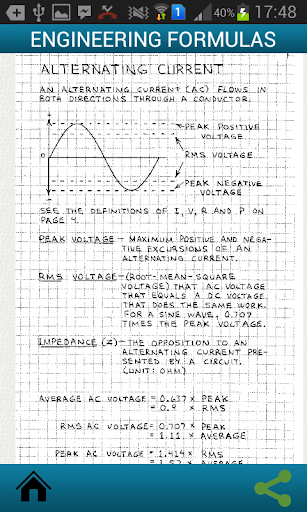 40% 17:48
ENGINEERING FORMULAS
ALTERNATING CURRENT
AN ALTERNATING CURRENT (AC) FLOWS IN
BOTH DIRECTIONS THROUGH A CONDUCTOR.
PEAK POSITIVE
VOLTAGE
0
RMS VOLTAGE
PEAK NEGATIVE
VOLTAGE
SEE THE DEFINITIONS OF I, V, R AND P ON
PAGE 4.
PEAK VOLTAGE – MAXIMUM POSITIVE AND NEGA-
TIVE EXCURSIONS OF AN
ALTERNATING CURRENT.
RMS VOLTAGE – (ROOT-MEAN-SQUARE
VOLTAGE) THAT AC VOLTAGE
THAT EQUALS A DC VOLTAGE
THAT DOES THE SAME WORK.
FOR A SINE WAVE, 0.707
TIMES THE PEAK VOLTAGE.
IMPEDANCE (Z) – THE OPPOSITION TO AN
ALTERNATING CURRENT PRE-
SENTED BY A CIRCUIT.
(UNIT: OHM)
AVERAGE AC VOLTAGE = 0.637 × PEAK
= 0.9 × RMS
RMS AC VOLTAGE = 0.707 × PEAK
= 1.11 × AVERAGE
PEAK AC VOLTAGE = 1.414 × RMS
= 1.57 × AVERAGE